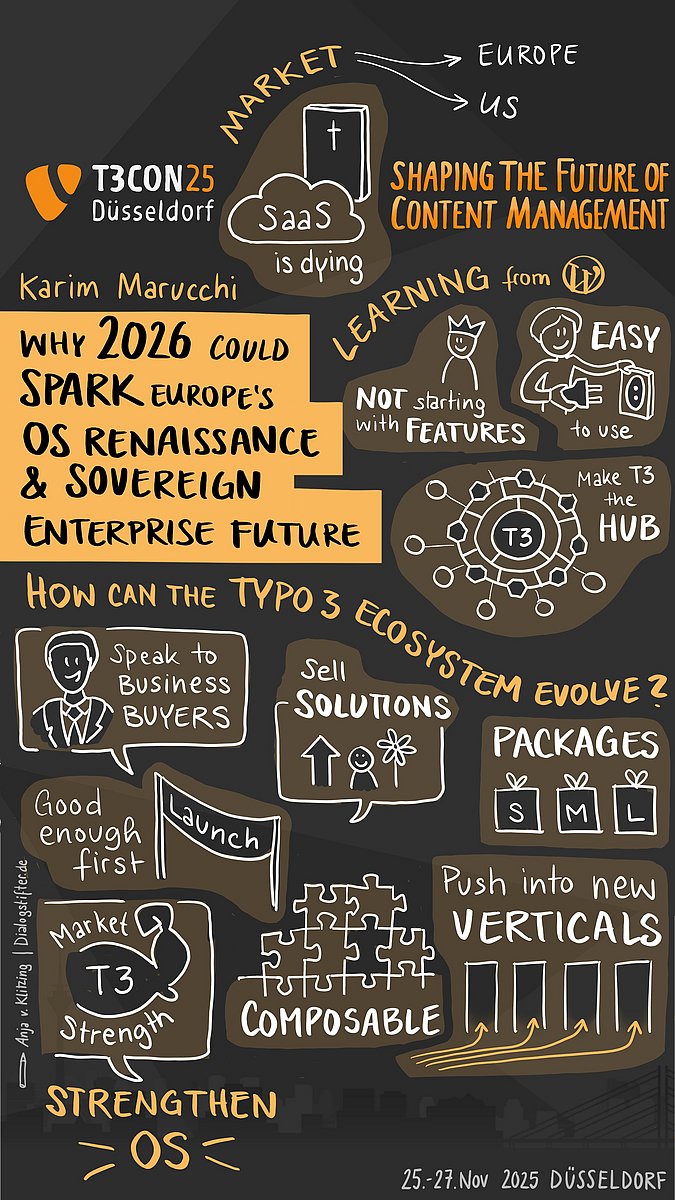 MARKET
EUROPE
US
T3CON25
Düsseldorf
SaaS
is dying
SHAPING THE FUTURE OF
CONTENT MANAGEMENT
Karim Marucchi
WHY 2026 COULD
SPARK EUROPE'S
OS RENAISSANCE
& SOVEREIGN
ENTERPRISE FUTURE
LEARNING from W
NOT starting
with FEATURES
EASY
to use
Make T3
the
HUB
T3
HOW CAN THE TYPO3 ECOSYSTEM EVOLVE?
Speak to
BUSINESS
BUYERS
Sell
SOLUTIONS
PACKAGES
S M L
Good
enough
first
Launch
Market
T3
Strength
COMPOSABLE
Push into new
VERTICALS
STRENGTHEN
OS
Anja v. Klitzing | Dialogstifter.de
25.-27. Nov 2025 DÜSSELDORF